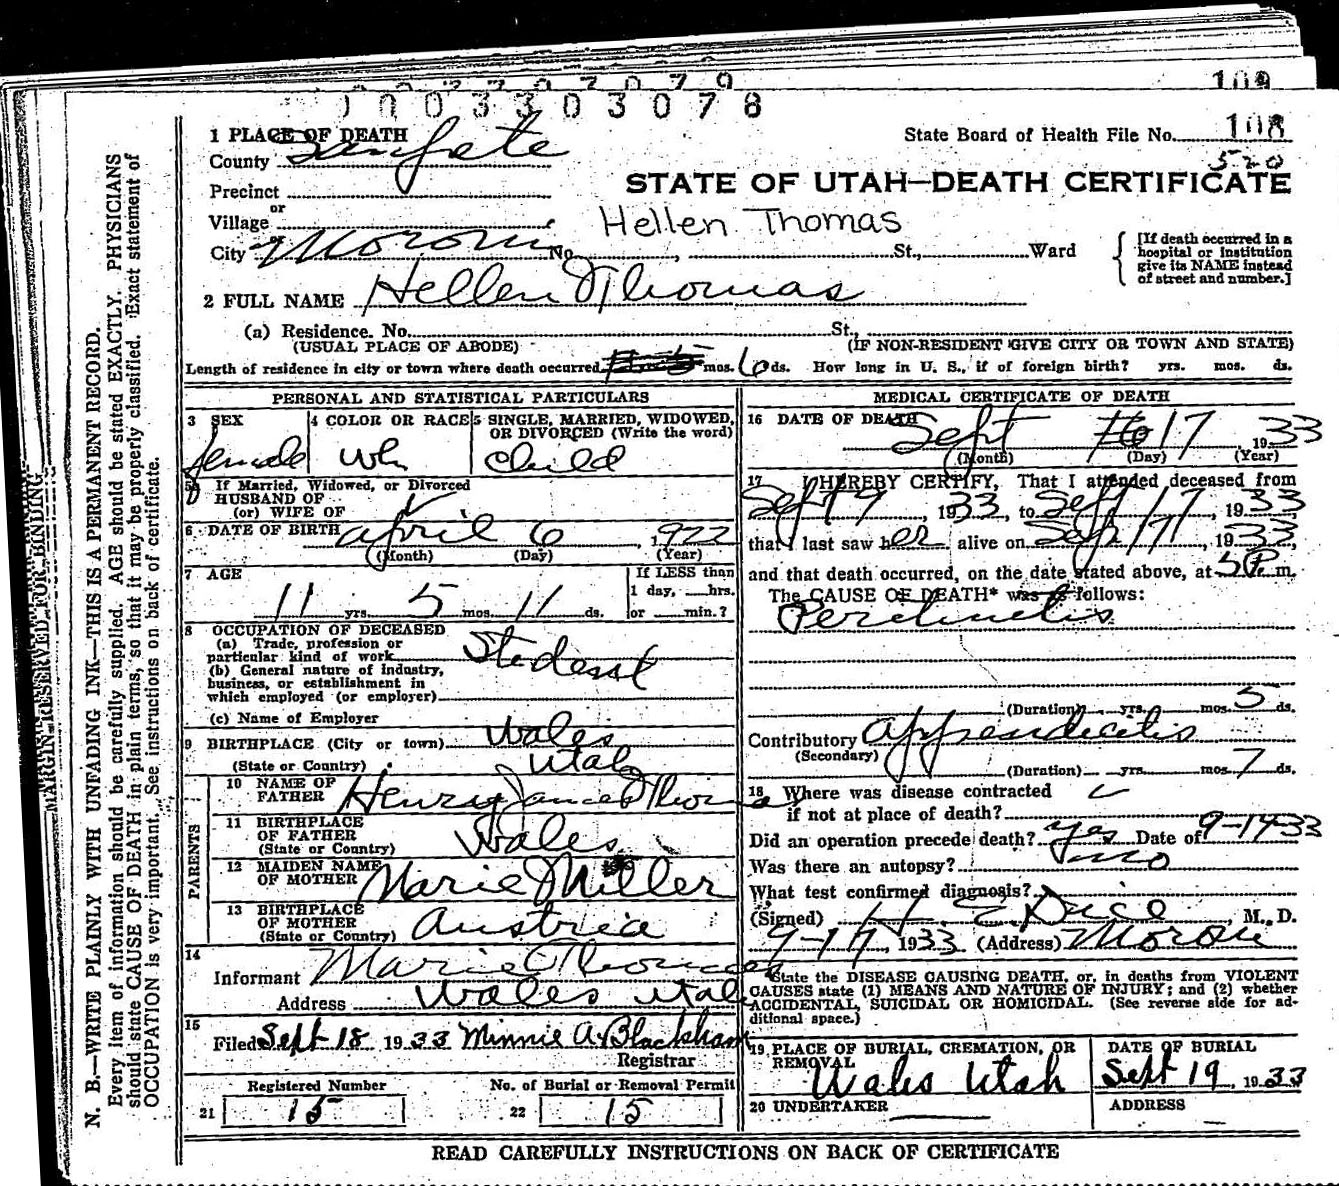 109
1 0 0 3 3 0 3 0 7 8
1 PLACE OF DEATH
State Board of Health File No. 108
County Sanpete
520
Precinct
STATE OF UTAH—DEATH CERTIFICATE
or
Village
Hellen Thomas
City Moroni No. , St., Ward
[If death occurred in a hospital or institution give its NAME instead of street and number.]
2 FULL NAME Hellen Thomas
(a) Residence. No. St.,
(USUAL PLACE OF ABODE) (IF NON-RESIDENT GIVE CITY OR TOWN AND STATE)
Length of residence in city or town where death occurred mos. 6 ds. How long in U. S., if of foreign birth? yrs. mos. ds.
PERSONAL AND STATISTICAL PARTICULARS
3 SEX 4 COLOR OR RACE 5 SINGLE, MARRIED, WIDOWED,
OR DIVORCED (Write the word)
female Wh Child
If Married, Widowed, or Divorced
HUSBAND OF
(or) WIFE OF
6 DATE OF BIRTH April 6, 1922
(Month) (Day) (Year)
7 AGE If LESS than
1 day, hrs.
11 yrs. 5 mos. 11 ds. or min.?
8 OCCUPATION OF DECEASED
(a) Trade, profession or
particular kind of work Student
(b) General nature of industry,
business, or establishment in
which employed (or employer)
(c) Name of Employer
9 BIRTHPLACE (City or town) Wales
(State or Country) Utah
PARENTS
10 NAME OF
FATHER Henry James Thomas
11 BIRTHPLACE
OF FATHER
(State or Country) Wales
12 MAIDEN NAME
OF MOTHER Marie Miller
13 BIRTHPLACE
OF MOTHER
(State or Country) Austria
14
Informant Marie Thomas
Address Wales Utah
15
Filed Sept 18 1933 Minnie A. Blackham
Registrar
Registered Number No. of Burial or Removal Permit
21 15 22 15
MEDICAL CERTIFICATE OF DEATH
16 DATE OF DEATH Sept 17, 1933
(Month) (Day) (Year)
17 I HEREBY CERTIFY, That I attended deceased from
Sept 9, 1933, to Sept 17, 1933
that I last saw her alive on Sept 17, 1933,
and that death occurred, on the date stated above, at 5 P. m.
The CAUSE OF DEATH* was as follows:
Peritinetis
(Duration) yrs. mos. 5 ds.
Contributory Appendicitis
(Secondary)
(Duration) yrs. mos. 7 ds.
18 Where was disease contracted
if not at place of death?
Did an operation precede death? yes Date of 9-14-33
Was there an autopsy? no
What test confirmed diagnosis?
(Signed) , M. D.
9-17, 1933 (Address) Moroni
*State the DISEASE CAUSING DEATH, or, in deaths from VIOLENT
CAUSES state (1) MEANS AND NATURE OF INJURY; and (2) whether
ACCIDENTAL, SUICIDAL OR HOMICIDAL. (See reverse side for ad-
ditional space.)
19 PLACE OF BURIAL, CREMATION, OR DATE OF BURIAL
REMOVAL
Wales Utah Sept 19, 1933
20 UNDERTAKER ADDRESS
READ CAREFULLY INSTRUCTIONS ON BACK OF CERTIFICATE
MARGIN RESERVED FOR BINDING
N. B.—WRITE PLAINLY WITH UNFADING INK—THIS IS A PERMANENT RECORD.
Every item of information should be carefully supplied. AGE should be stated EXACTLY. PHYSICIANS
should state CAUSE OF DEATH in plain terms, so that it may be properly classified. Exact statement of
OCCUPATION is very important. See instructions on back of certificate.